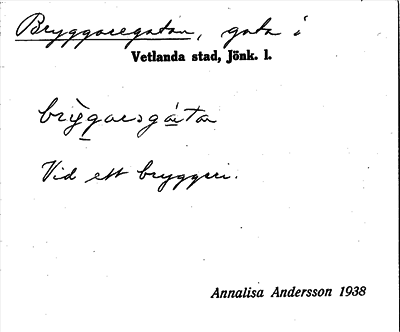 Bryggaregatan, gata i
Vetlanda stad, Jönk. l.
Vid ett bryggeri.
Annalisa Andersson 1938